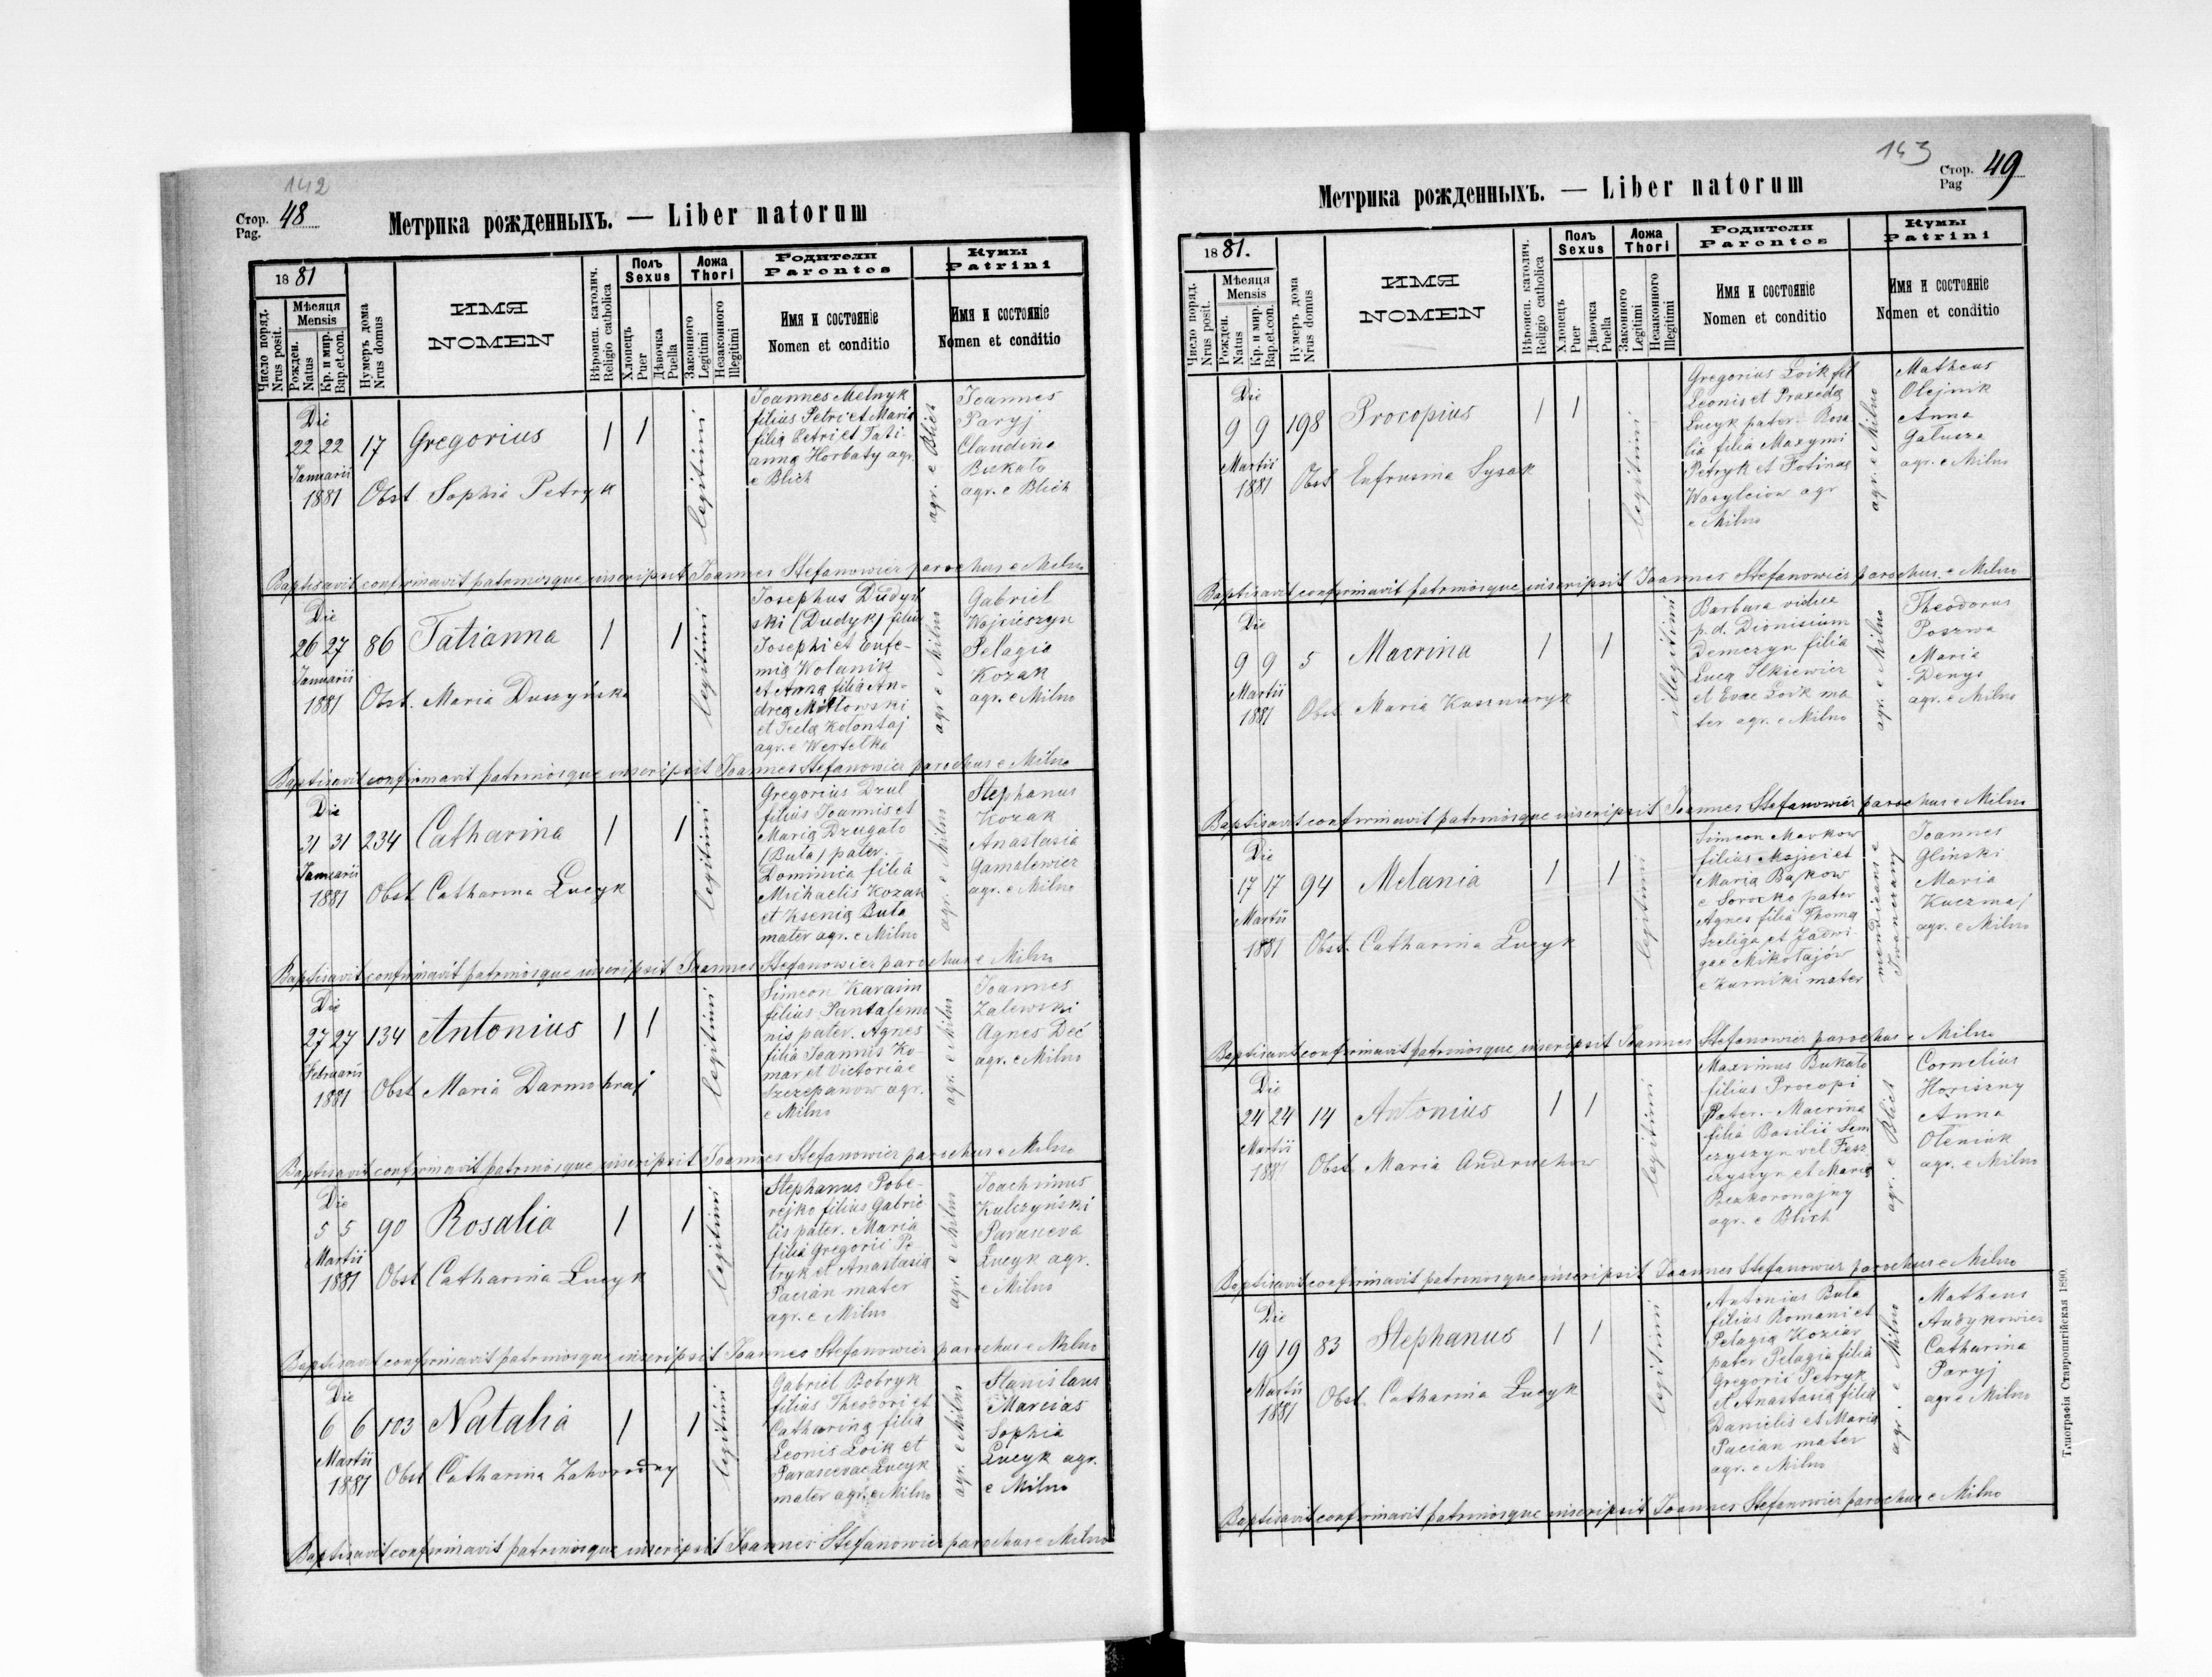 142
Стор. 48
Pag.
Метрика рожденныхъ. — Liber natorum
1881
Число поряд.
Nrus posit.
Мѣсяця
Mensis
Рожден.
Natus
Кр. и мир.
Bap.et.con.
Нумеръ дома
Nrus domus
ИМЯ
NOMEN
Вѣроисп. католич.
Religio catholica
Полъ
Sexus
Хлопецъ
Puer
Дѣвочка
Puella
Ложа
Thori
Законного
Legitimi
Незаконного
Illegitimi
Родители
Parentes
Имя и состояніе
Nomen et conditio
Кумы
Patrini
Имя и состояніе
Nomen et conditio
Die
22 22 17 Gregorius 1 1
Januarii
1881 Obst Sophia Petryk
legitimi
Joannes Melnyk
filius Petri et Maria
filia Petri et Tati-
anna Horbaty agr.
e Blich
agr. e Blich
Joannes
Paryj
Claudina
Bukato
agr. e Blich
Baptisavit confirmavit patrinosque inscripsit Joannes Stefanowicz parochus e Milno
Die
26 27 86 Tatianna 1 1
Januarii
1881 Obst. Maria Duszyńska
legitimi
Josephus Dudyń
ski (Dudyk) filius
Josephi et Eufe-
mia Wolanik
et Anna filia An-
drea Mitlowski
et Tecla Kolontaj
agr. e Wertelka
agr e Milno
Gabriel
Wojcieszyn
Pelagia
Kozak
agr. e Milno
Baptisavit confirmavit patrinosque inscripsit Joannes Stefanowicz parochus e Milno
Die
31 31 234 Catharina 1 1
Januarii
1881 Obst Catharina Lucyk
legitimi
Gregorius Dzul
filius Joannis et
Maria Dzugało
(Buta) pater.
Dominica filia
Michaelis Kozak
et Ksenia Buta
mater agr. e Milno
agr. e Milno
Stephanus
Kozak
Anastasia
Gamalewicz
agr. e Milno
Baptisavit confirmavit patrinosque inscripsit Joannes Stefanowicz parochus e Milno
Die
27 27 134 Antonius 1 1
Februarii
1881 Obst Maria Darmohraj
legitimi
Simeon Karaim
filius Pantalemo
nis pater. Agnes
filia Joannis Ko
mar et Victoriae
Szczepanow agr.
e Milno
agr. e Milno
Joannes
Zalewski
Agnes Deć
agr. e Milno
Baptisavit confirmavit patrinosque inscripsit Joannes Stefanowicz parochus e Milno
Die
5 5 90 Rosalia 1 1
Martii
1881 Obst Catharina Lucyk
legitimi
Stephanus Pobe-
rejko filius Gabrie
lis pater. Maria
filia Gregorii Pe
tryk et Anastasia
Pacian mater
agr. e Milno
agr. e Milno
Joachimus
Kulczyński
Parasceva
Lucyk agr.
e Milno
Baptisavit confirmavit patrinosque inscripsit Joannes Stefanowicz parochus e Milno
Die
6 6 103 Natalia 1 1
Martii
1881 Obst Catharina Zahorodny
legitimi
Gabriel Bobryk
filius Theodori et
Catharina filia
Leonis Loik et
Parascevae Lucyk
mater agr. e Milno
agr. e Milno
Stanislaus
Marcias
Sophia
Lucyk agr.
e Milno
Baptisavit confirmavit patrinosque inscripsit Joannes Stefanowicz parochus e Milno
143
Стор. 49
Pag
Метрика рожденныхъ. — Liber natorum
1881.
Число поряд.
Nrus posit.
Мѣсяця
Mensis
Рожден.
Natus
Кр. и мир.
Bap.et.con.
Нумеръ дома
Nrus domus
ИМЯ
NOMEN
Вѣроисп. католич.
Religio catholica
Полъ
Sexus
Хлопецъ
Puer
Дѣвочка
Puella
Ложа
Thori
Законного
Legitimi
Незаконного
Illegitimi
Родители
Parentes
Имя и состояніе
Nomen et conditio
Кумы
Patrini
Имя и состояніе
Nomen et conditio
Die
9 9 198 Procopius 1 1
Martii
1881 Obst Eufrusina Sysak
legitimi
Gregorius Loik fil
Leonis et Praxeda
Lucyk pater. Rosa
lia filia Maxymi
Petryk et Fotinae
Wasylciow agr
e Milno
agr. e Milno
Matheus
Olejnik
Anna
Galusza
agr. e Milno
Baptisavit confirmavit patrinosque inscripsit Joannes Stefanowicz parochus. e Milno
Die
9 9 5 Macrina 1 1
Martii
1881 Obst Maria Kusznaryk
illegitimi
Barbara vidua
p. d. Dionisium
Demczyn filia
Luca Ilkiewicz
et Evae Loik ma
ter agr. e Milno
agr. e Milno
Theodorus
Poszwa
Maria
Denys
agr. e Milno
Baptisavit confirmavit patrinosque inscripsit Joannes Stefanowicz parochus e Milno
Die
17 17 94 Melania 1 1
Martii
1881 Obst. Catharina Lucyk
legitimi
Simeon Markow
filius Mojsei et
Maria Bajkow
e Sorocko pater
Agnes filia Thoma
Szeliga et Jadwi
gae Mikołajów
e Kurniki mater
mendicans e
Joannes
Glinski
Maria
Kuczma
agr. e Milno
Baptisavit confirmavit patrinosque inscripsit Joannes Stefanowicz parochus e Milno
Die
24 24 14 Antonius 1 1
Martii
1881 Obst Maria Andruchow
legitimi
Maximus Bukato
filius Procopi
Pater. Macrina
filia Basilii Sem
czyszyn vel Fesz
czyszyn et Maria
Bezkoronajny
agr. e Blich
agr. e Blich
Cornelius
Horiszny
Anna
Oleniuk
agr. e Milno
Baptisavit confirmavit patrinosque inscripsit Joannes Stefanowicz parochus e Milno
Die
19 19 83 Stephanus 1 1
Martii
1881 Obst. Catharina Lucyk
legitimi
Antonius Buta
filius Romani et
Pelagia Koziar
pater Pelagia filia
Gregorii Petryk
et Anastasia filia
Danielis et Maria
Pacian mater
agr. e Milno
agr. e Milno
Matheus
Andykowicz
Catharina
Paryj
agr e Milno
Baptisavit confirmavit patrinosque inscripsit Joannes Stefanowicz parochus e Milno
Типографія Ставропигійская 1890.